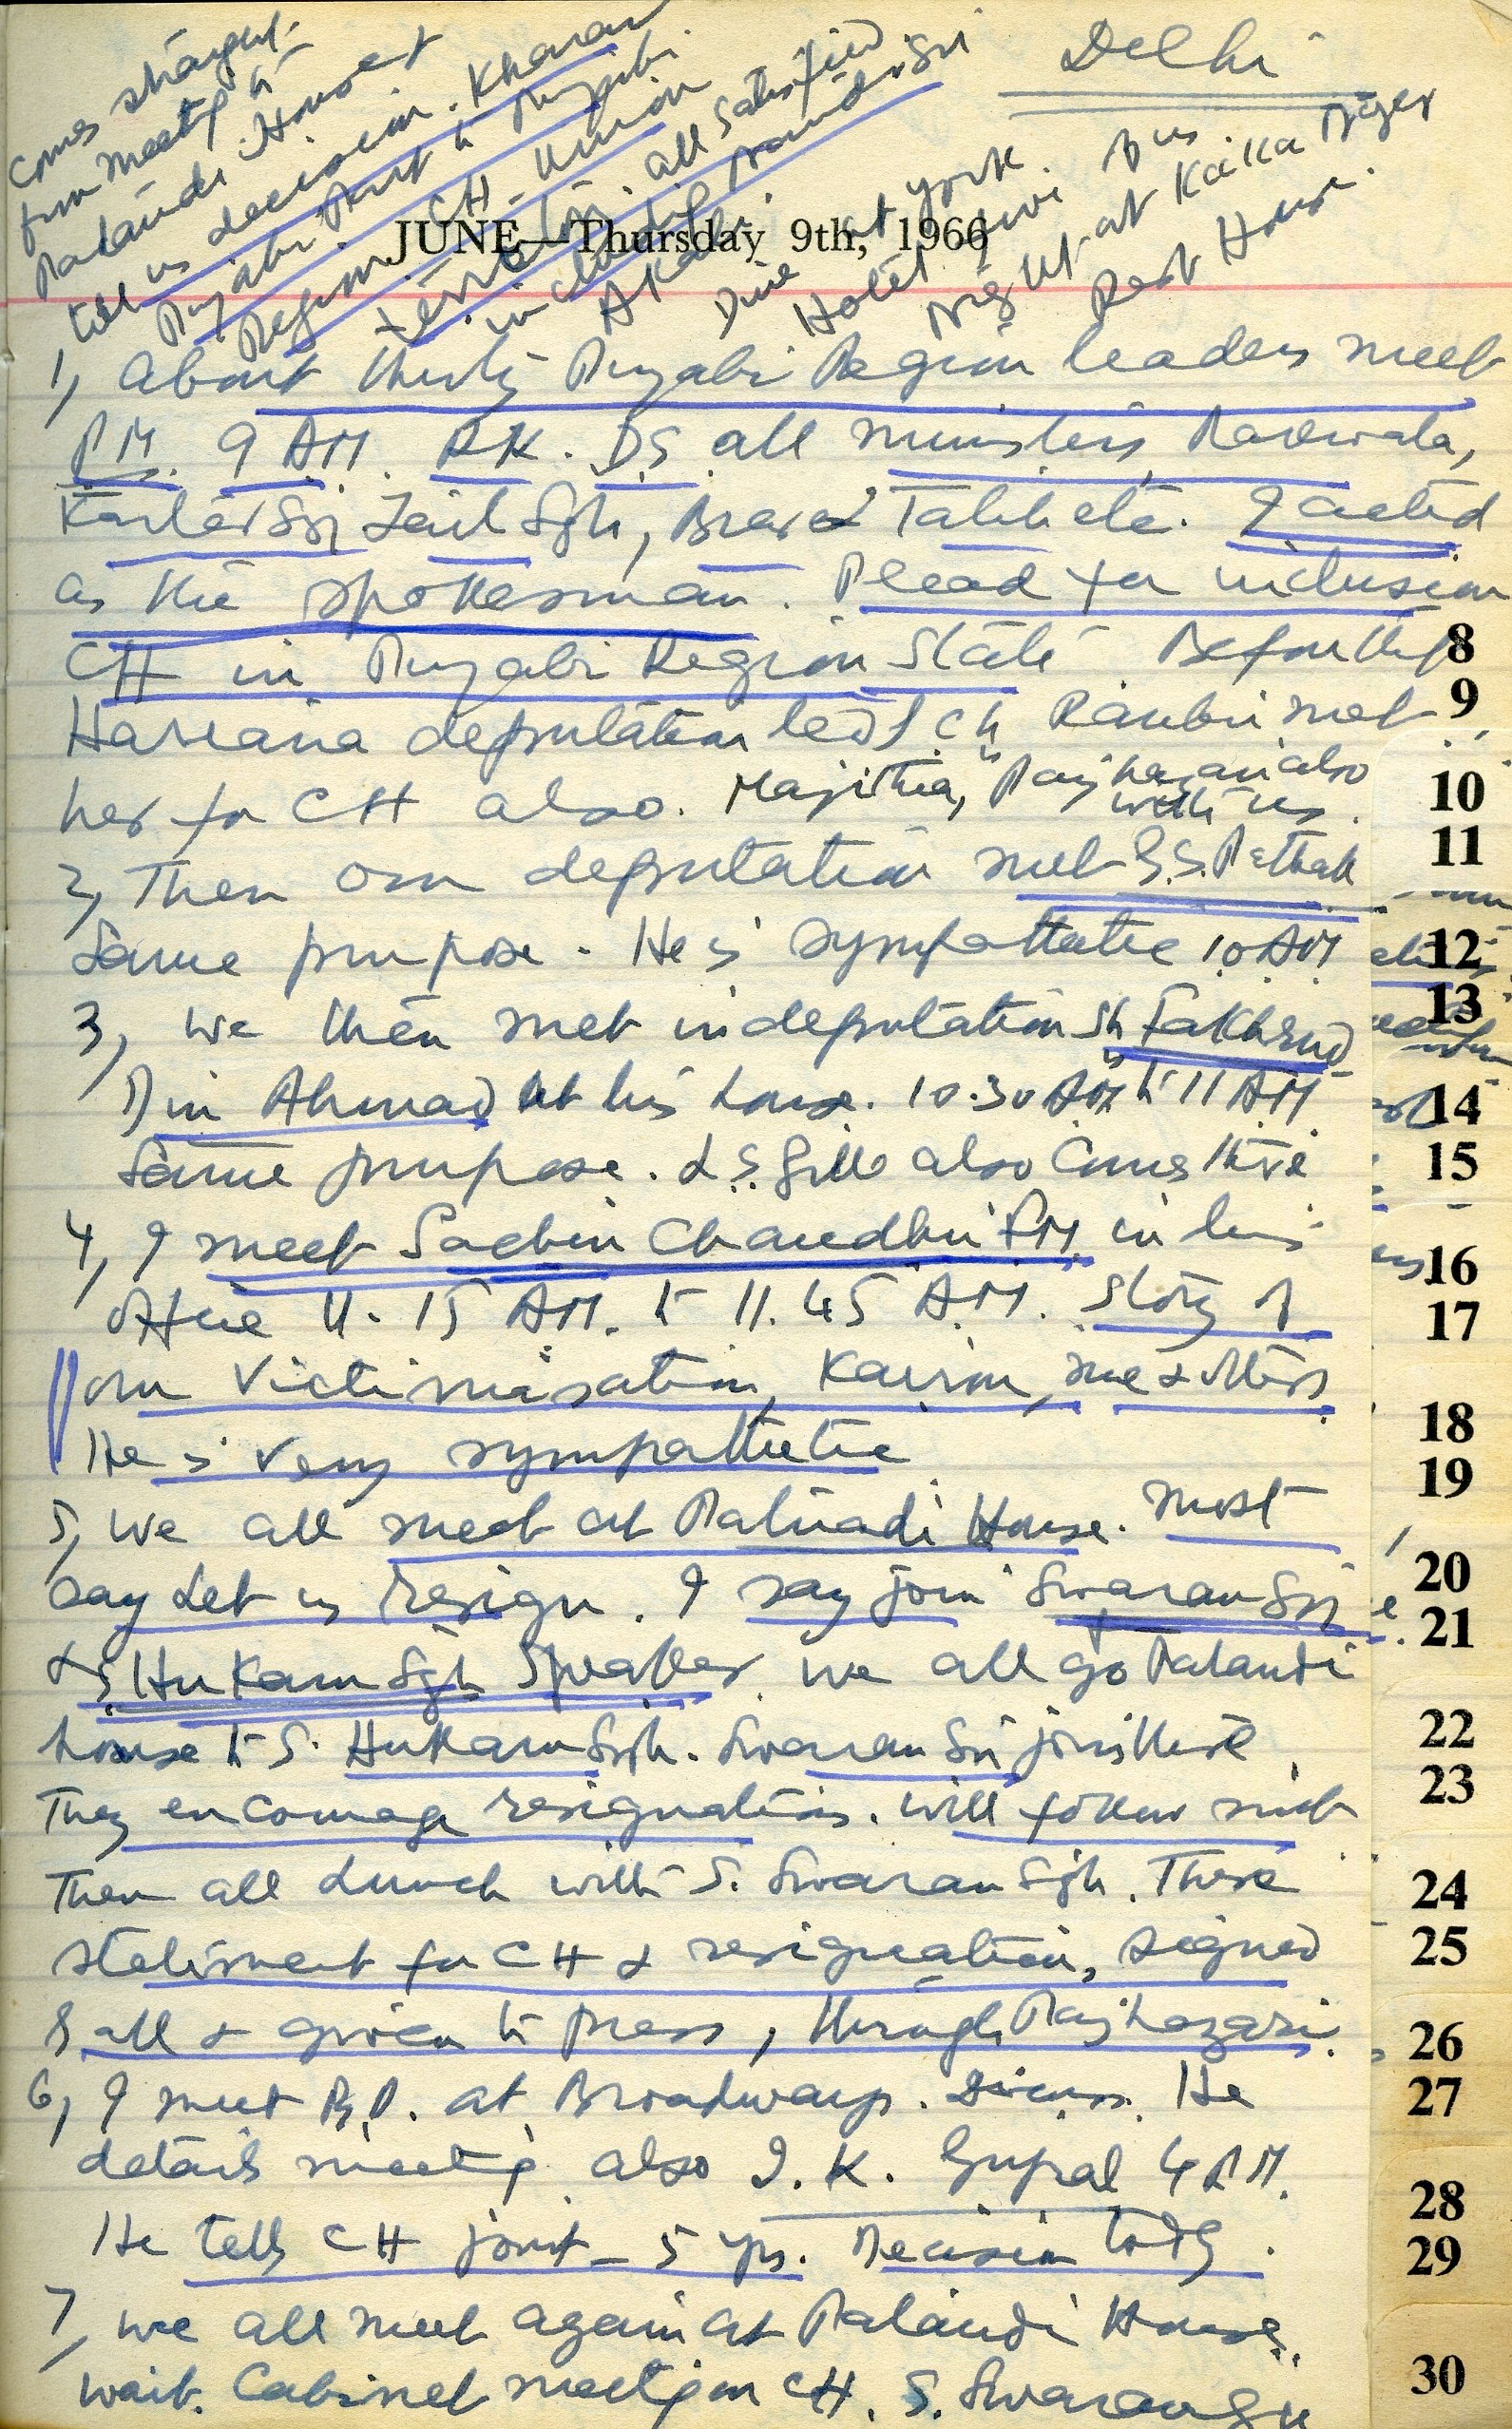 Delhi
comes straight
from meeting to
Pataudi House &
tell us decision. Kharar
Punjabi Part to Punjabi
Region. CH - Union
territory. all satisfied
including Nand Sgh
Akali.
Dine at York
Hotel. Drive Bus
Night at Kalka
Rest House.
JUNE—Thursday 9th, 1966
1, About thirty Punjabi Region leaders meet
PM. 9 AM. RK. DS all ministers Rarewala,
Kartar Sgh Zail Sgh, Brar & Talib etc. I acted
as the spokesman. Plead for inclusion
CH in Punjabi Region State Before this
Hariana deputation led by Ch Ranbir met
her for CH also. Majithia, Raj hazari also
with us.
2, Then our deputation met G.S. Pathak
Same purpose - He is sympathetic 10 AM
3, we then met in deputation Sh Fakhrud
Din Ahmad at his house. 10.30 AM to 11 AM
Same purpose. L S. Gill also comes there
4, I meet Sachin Chaudhri FM in his
Office 11.15 AM. to 11.45 A.M. Story of
our Victimisation, Kairon, me & others
He is very sympathetic
5, We all meet at Pataudi House. Most
say Let us resign. I say join Swaran Sgh
& S. Hukam Sgh Speaker. we all go Pataudi
house to S. Hukam Sgh. Swaran Sgh joins there
They encourage resignations. Will follow suit
Then all Lunch with S. Swaran Sgh. There
statement for CH & resignation, signed
by all & given to press, through Raj hazari.
6, I meet B.D. at Broadways. Discuss. He
details meeting also I. K. Gujral 4 PM.
He tells CH joint - 5 yrs. Decision today.
7, we all meet again at Pataudi House
wait. Cabinet meeting on CH. S. Swaran Sgh
8
9
10
11
12
13
14
15
16
17
18
19
20
21
22
23
24
25
26
27
28
29
30